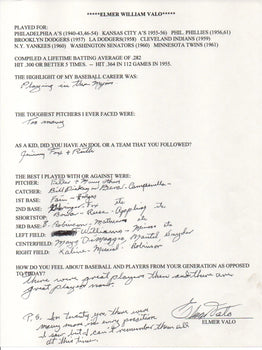 *****ELMER WILLIAM VALO*****
PLAYED FOR:
PHILADELPHIA A'S (1940-43,46-54) KANSAS CITY A'S 1955-56) PHIL. PHILLIES (1956,61)
BROOKLYN DODGERS (1957) LA DODGERS(1958) CLEVELAND INDIANS (1959)
N.Y. YANKEES (1960) WASHINGTON SENATORS (1960) MINNESOTA TWINS (1961)
COMPILED A LIFETIME BATTING AVERAGE OF .282
HIT .300 OR BETTER 5 TIMES. -- HIT .364 IN 112 GAMES IN 1955.
THE HIGHLIGHT OF MY BASEBALL CAREER WAS:
Playing in the Majors
THE TOUGHEST PITCHERS I EVER FACED WERE:
Too many
AS A KID, DID YOU HAVE AN IDOL OR A TEAM THAT YOU FOLLOWED?
Jimmy Foxx & Ruth
THE BEST I PLAYED WITH OR AGAINST WERE:
PITCHER: Feller & Many others
CATCHER: Bill Dickey - Berra - Campanella -
1ST BASE: Fain - Hodges
2ND BASE: Fox etc
SHORTSTOP: Reese - Appling etc
3RD BASE: B. Robinson - Mathews etc
LEFT FIELD: Williams - etc
CENTERFIELD: Mays DiMaggio, Mantle Snyder
RIGHT FIELD: Kaline - Musial Robinson
HOW DO YOU FEEL ABOUT BASEBALL AND PLAYERS FROM YOUR GENERATION AS OPPOSED
TO TODAY?
there were great players then and there are
great players now.
P.S. In twenty yrs there were
many more in every position
I saw, but I can't remember them all
at this time.
Elmer Valo
ELMER VALO